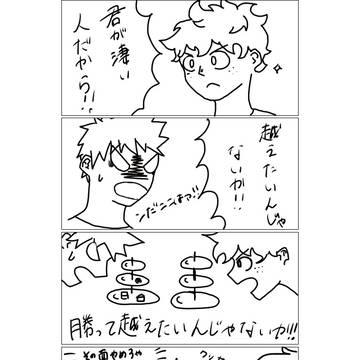 君が凄い
人だから!!
越えたいんじゃ
ないか!!
んだニュはァ!!
勝って越えたいんじゃないか!!!
その面やめろや